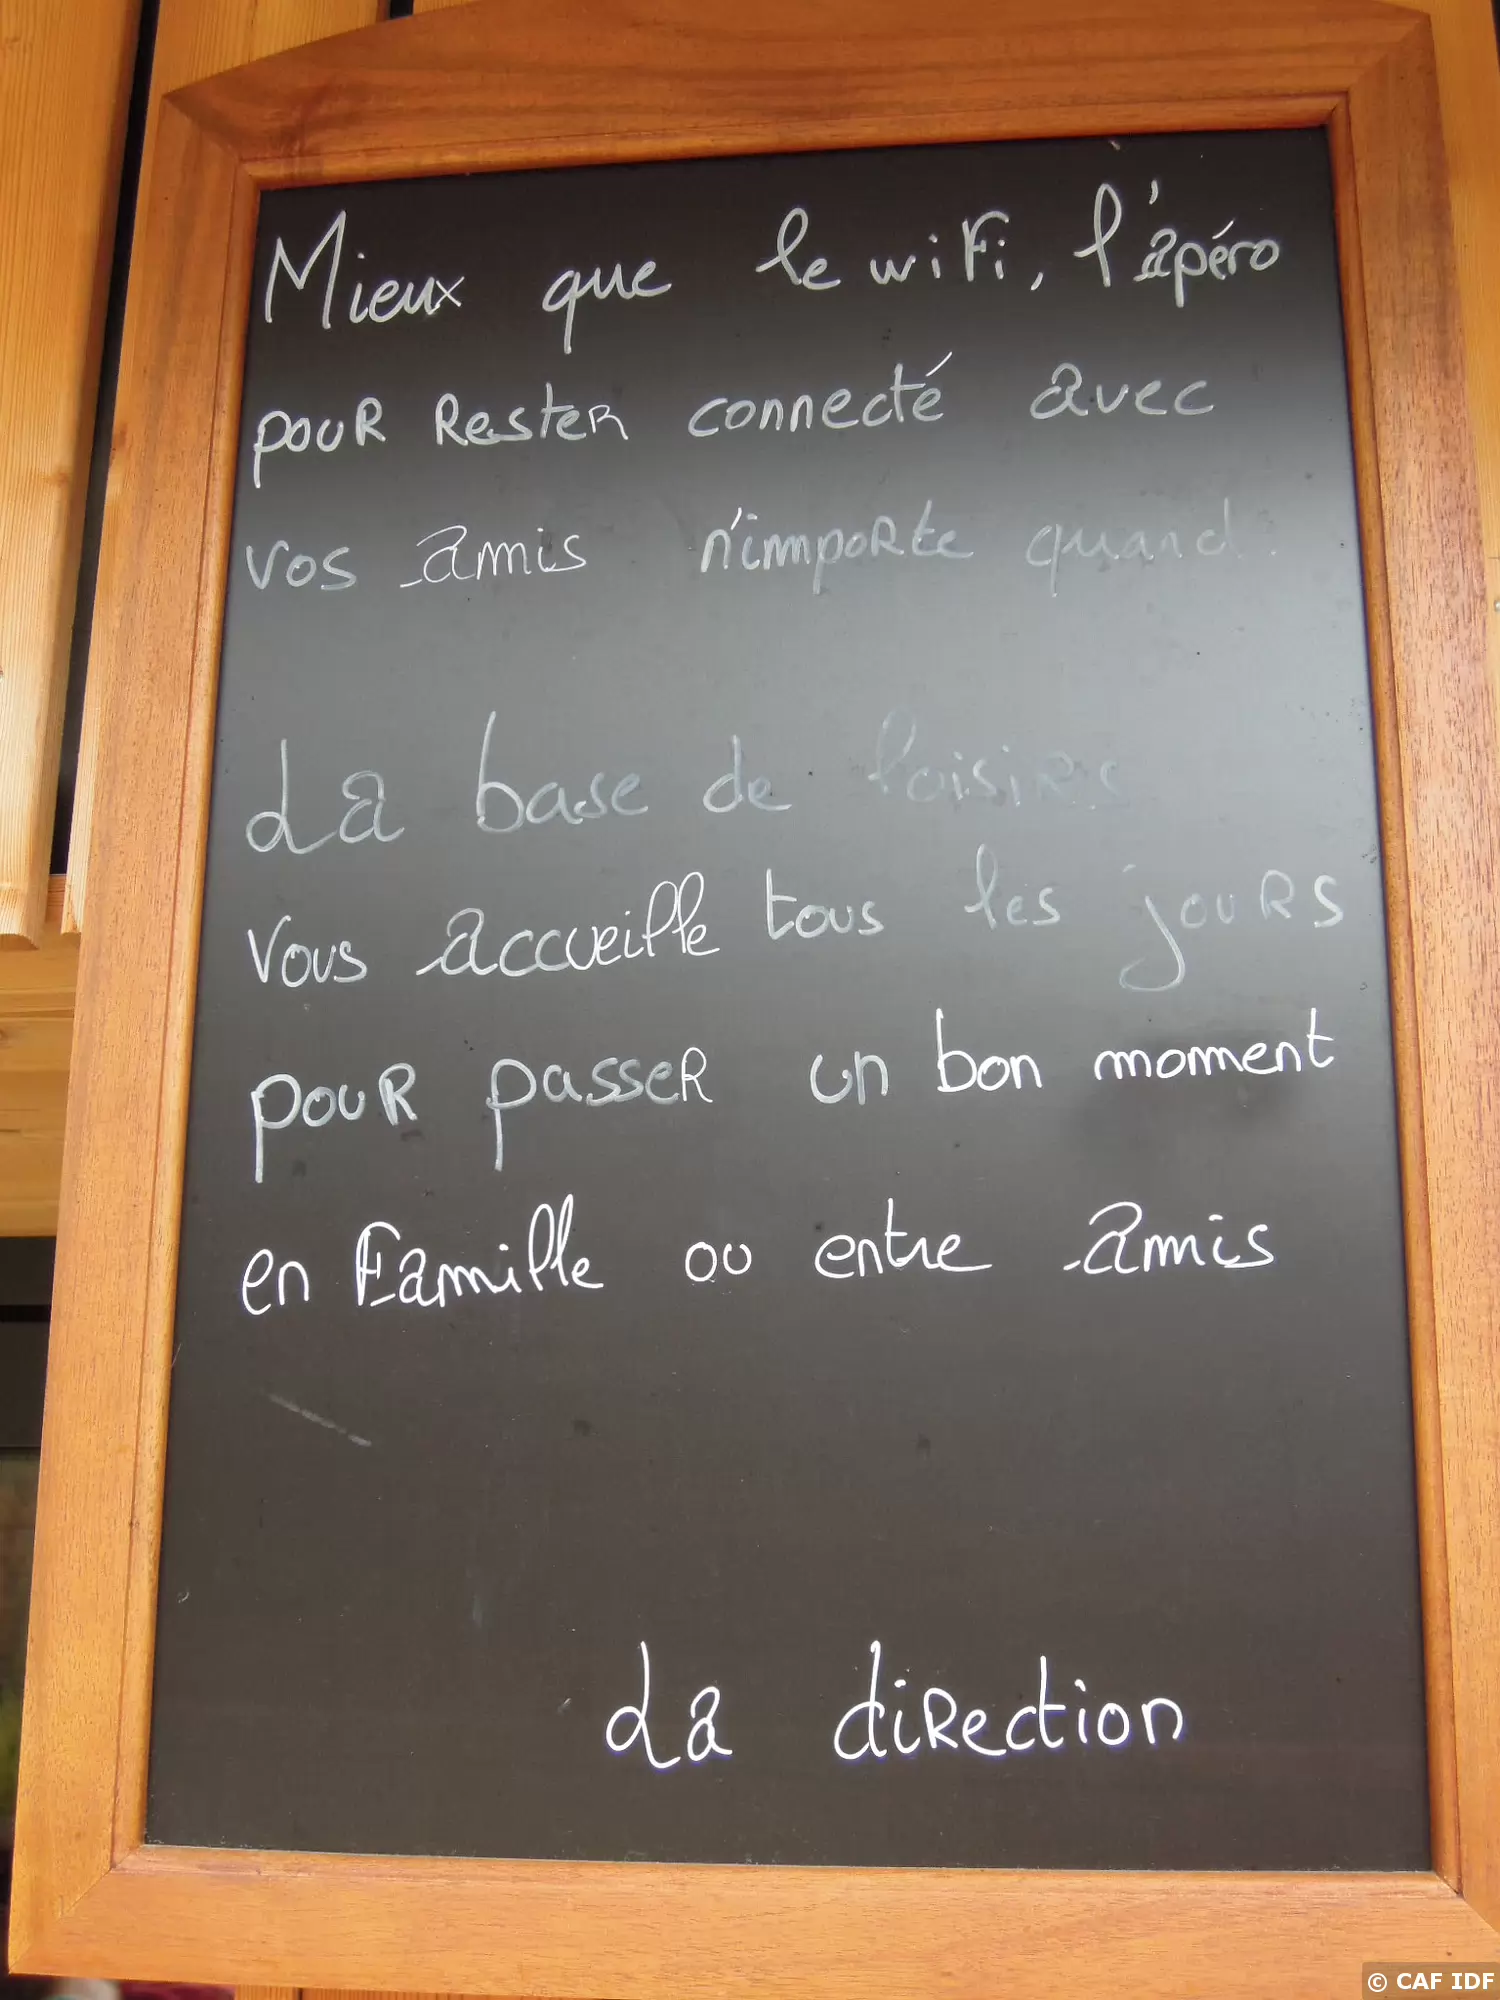 Mieux que le wiFi, l'apéro
pouR ResteR connecté avec
vos amis n'impoRte quand.
La base de loisiRs
Vous accueille tous les jouRs
pouR passeR un bon moment
en Famille ou entre amis
La diRection
© CAF IDF